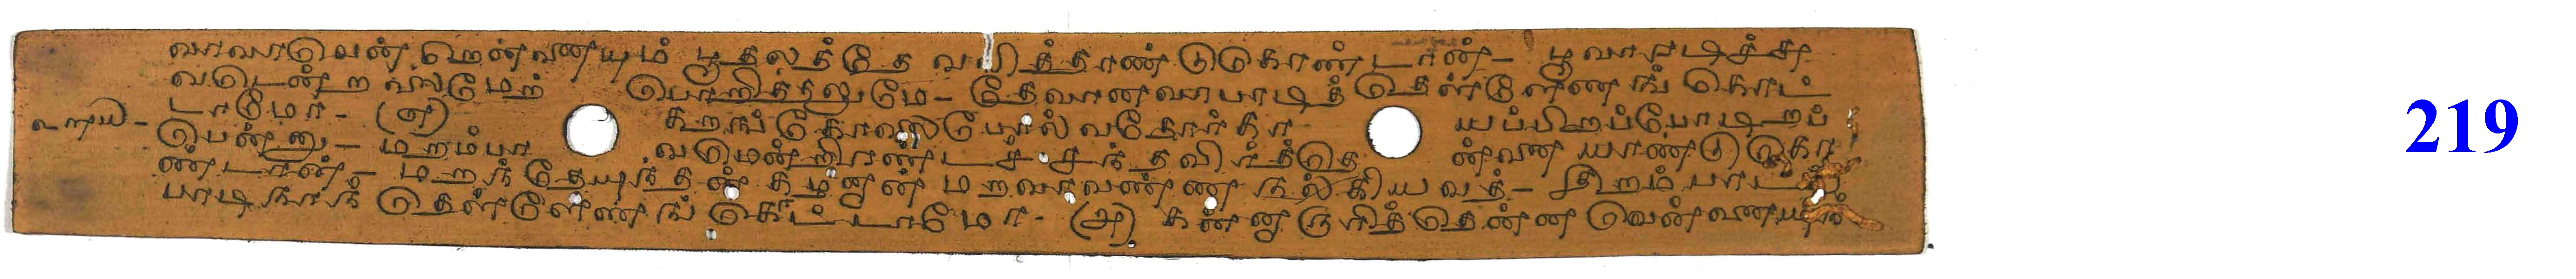 வாவாவென் றென்னையும் பூதலத்தே வலித்தாண்டுகொண்டான் - பூவாரடிச்சு
வடென்ற லைமேற் பொறித்தலுமே - தேவானவாபாடித் தெள்ளேணங் கொட்
டாமோ - (௭) கறங்கோலைபோல்வதோர்கா யப்பிறப்போடிறப்
பென்னு - மறம்பா வமென்றிரண்டச்சந்தவிர்த்தெ ன்னை யாண்டுகொ
ண்டான் - மறந்தேயுந்தன் கழனான் மறவாவண்ண நல்கியவத் - திறம்பாடல்
பாடிநாந் தெள்ளேணங் கொட்டாமோ - (௮) கன்னாருரித்தென்ன வென்னையுந்
219